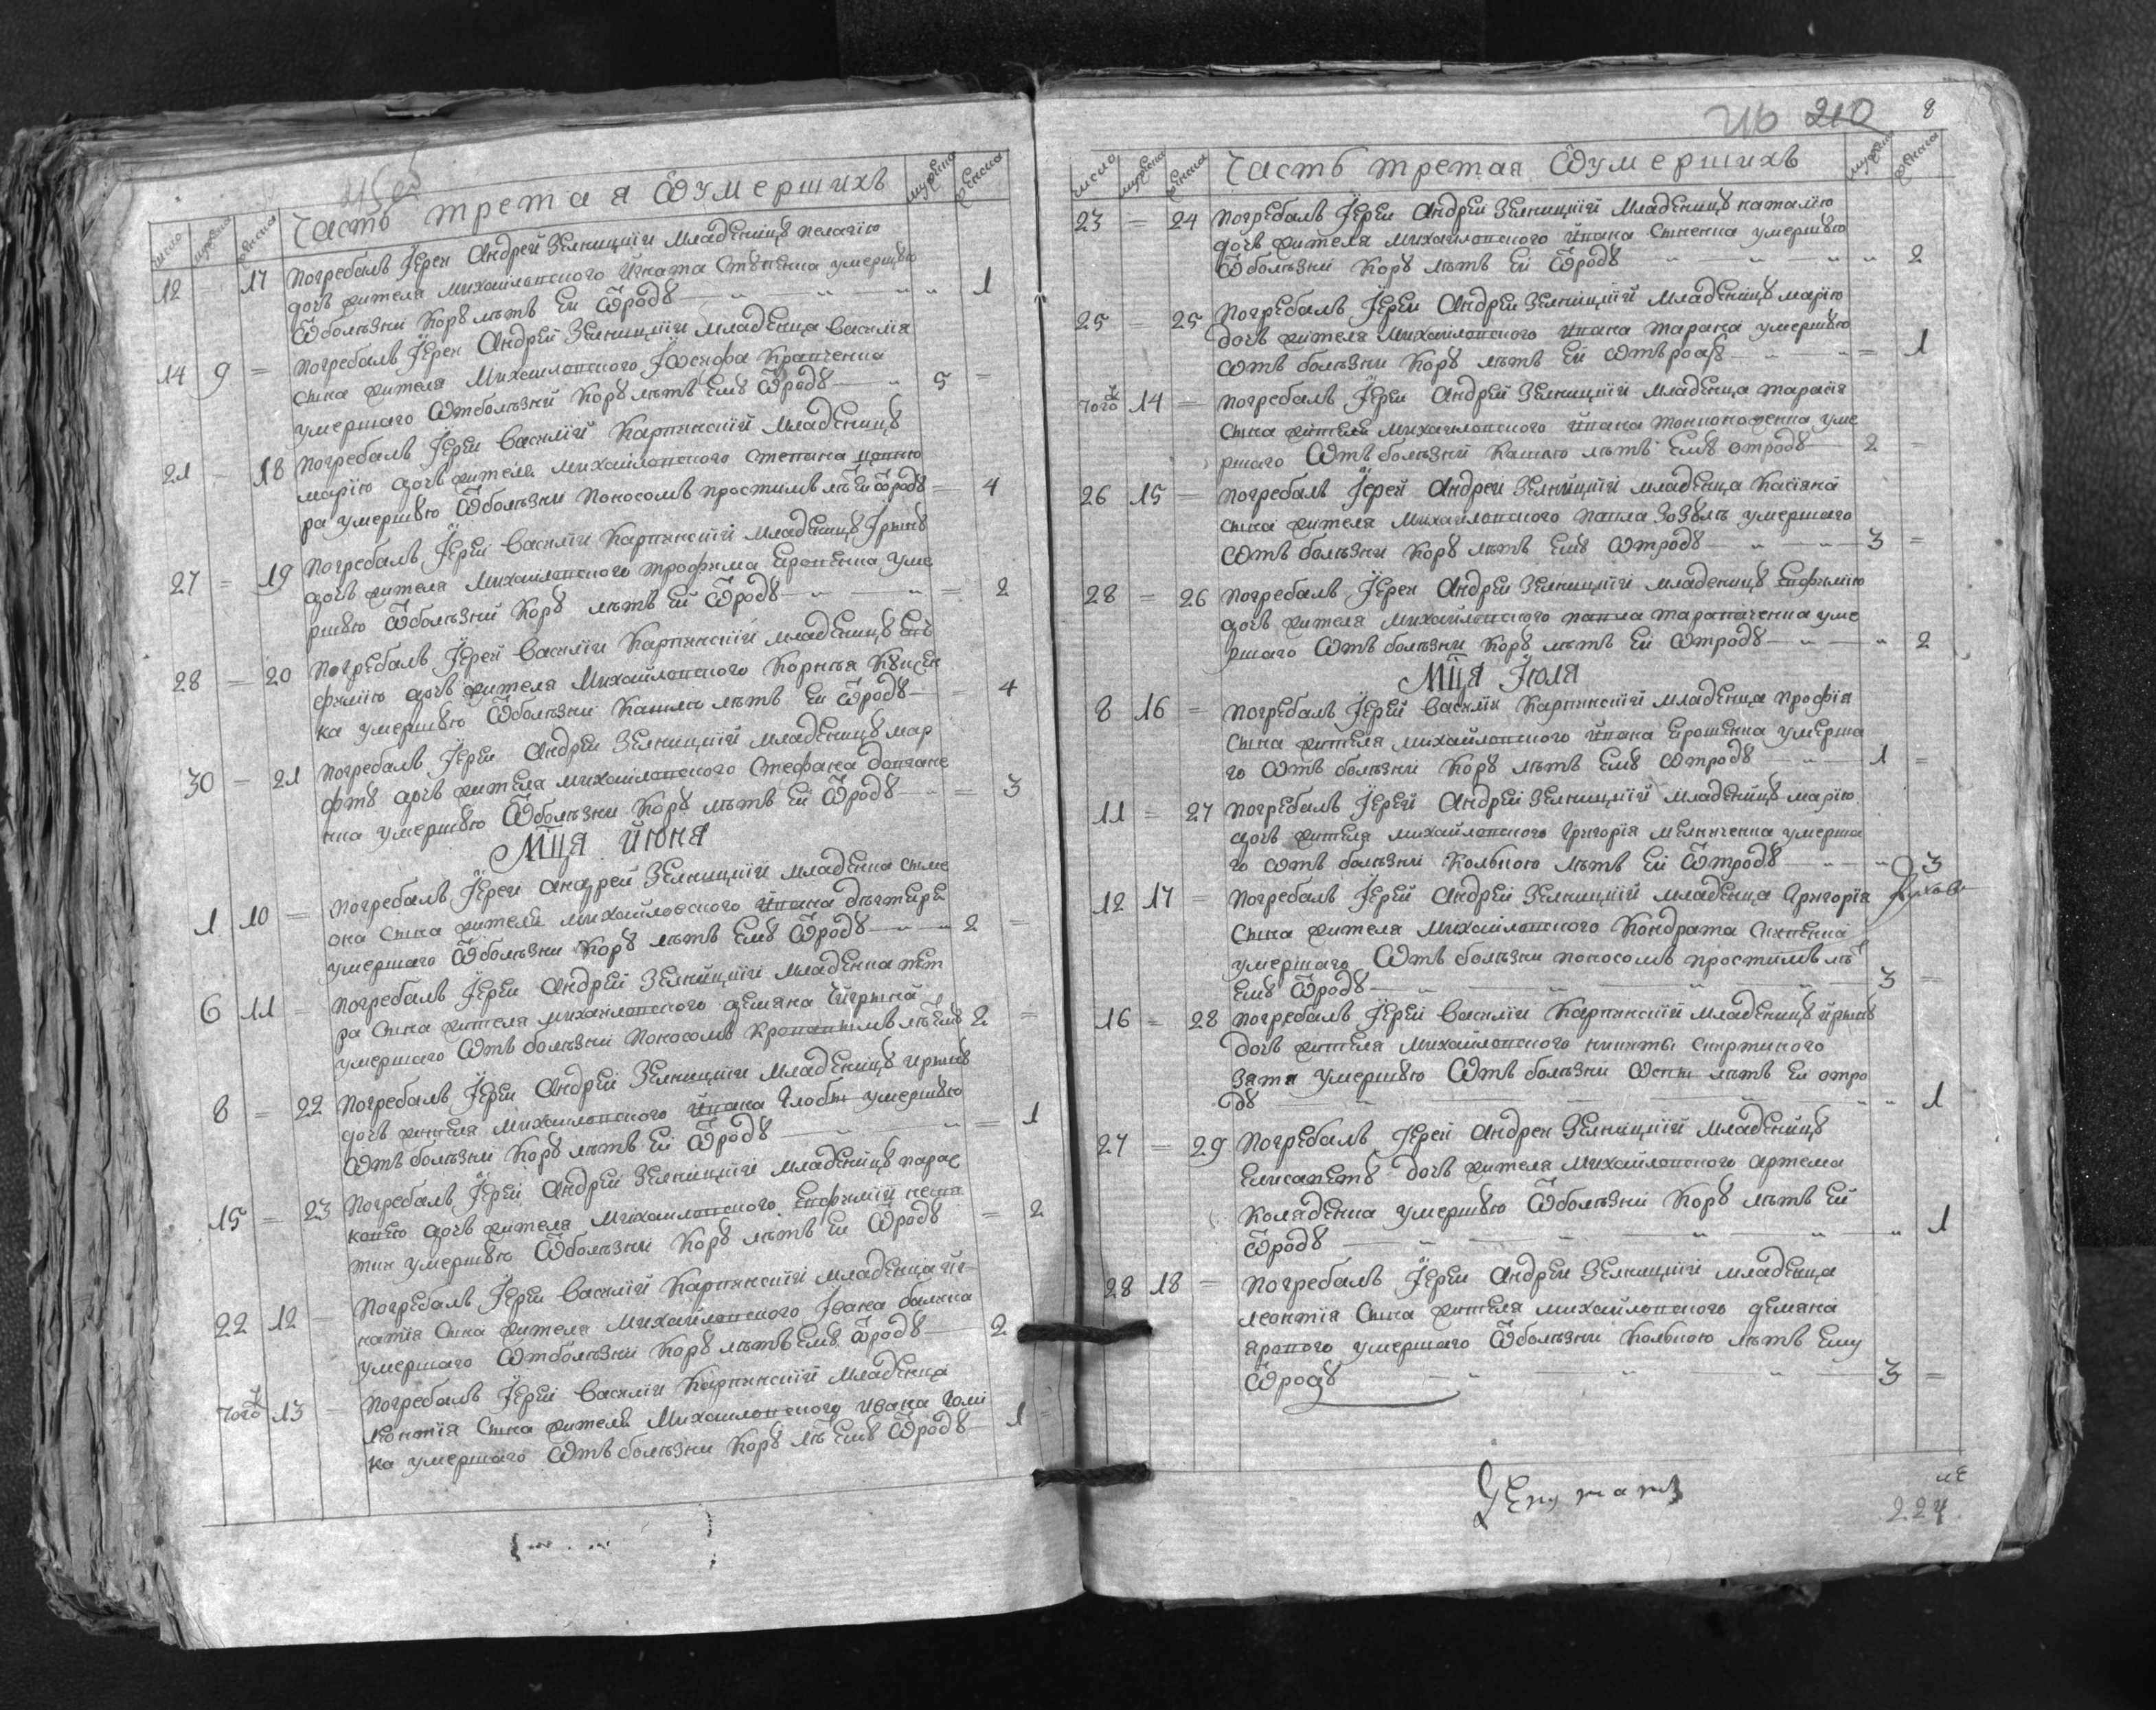 Часть третая Ѿумершихъ
число мужеска женска
мужеска женска
12 – 17 Погребалъ Іерей Андрей Зелницкїй Младеницꙋ пелагїю
дочь жителя михайловского Игната Стꙋпꙗка умершꙋю
Ѿболѣзни Корꙋ лѣтъ ей Ѿродꙋ 1
14 9 = Погребалъ Іерей Андрей Зелницкїй Младенца василїя
сына жителя Михайловского Іѡсифа Кравченка
умершаго Ѿтболѣзни Корꙋ лѣтъ емꙋ Ѿродꙋ 5 =
21 – 18 Погребалъ Іерей Василїй Карпинскїй Младеницꙋ
марїю дочь жителя Михайловского Степана
ра умершꙋю Ѿболѣзни Поносомъ простимъ лѣ ей Ѿродꙋ = 4
27 = 19 Погребалъ Іерей Василїй Карпинскїй Младеницꙋ Ірынꙋ
дочь жителя Михайловского трофима уме
ршꙋю Ѿболѣзни Корꙋ лѣтъ ей Ѿродꙋ = 2
28 – 20 Погребалъ Іерей Василїй Карпинскїй младеницꙋ Ев
фимїю дочь жителя Михайловского Корнея Кꙋцен
ка умершꙋю Ѿболѣзни Кашлю лѣтъ ей Ѿродꙋ = 4
30 – 21 Погребалъ Іерей Андрей Зелницкїй младеницꙋ мар
фꙋ дочь жителя михайловского Стефана Довгане
нка умершꙋю Ѿболѣзни Корꙋ лѣтъ ей Ѿродꙋ = 3
Мца июня
1 10 = Погребалъ Іерей Андрей Зелницкїй младенца симе
она сына жителя михайловского Ивана
умершаго Ѿболѣзни Корꙋ лѣтъ емꙋ Ѿродꙋ 2 =
6 11 = Погребалъ Іерей Андрей Зелницкїй младенца пет
ра сына жителя михайловского демяна
умершаго Ѿтъ болѣзни Поносомъ Кровавимъ лѣ емꙋ 2 =
8 = 22 Погребалъ Іерей Андрей Зелницкїй Младеницꙋ ирынꙋ
дочь жителя михайловского Ивана Глобы умершꙋю
Ѿтъ болѣзни Корꙋ лѣтъ ей Ѿродꙋ = 1
15 = 23 Погребалъ Іерей Андрей Зелницкїй младеницꙋ парас
ковїю дочь жителя Михайловского Евфимїй
умершꙋю Ѿболѣзни Корꙋ лѣтъ ей Ѿродꙋ = 2
22 12 – Погребалъ Іерей Василїй Карпинскїй младенца иг
натїя сына жителя Михайловского Івана
умершаго Ѿтболѣзни Корꙋ лѣтъ емꙋ Ѿродꙋ 2
Тогож 13 – Погребалъ Іерей Василїй Карпинскїй младенца
леонтїя сына жителя Михайловского Ивана
ка умершаго Ѿтъ болѣзни Корꙋ лѣ емꙋ Ѿродꙋ 1
210 8
Часть третая Ѿумершихъ
число мужеска женска
мужеска женска
23 = 24 Погребалъ Іерей Андрей Зелницкїй Младеницꙋ наталїю
дочь жителя михайловского Ивана умершꙋю
Ѿболѣзни Корꙋ лѣтъ ей Ѿродꙋ 2
25 = 25 Погребалъ Іерей Андрей Зелницкїй Младеницꙋ марїю
дочь жителя Михайловского Ивана тарана умершꙋю
Ѿтъ болѣзни Корꙋ лѣтъ ей Ѿтъродꙋ = 1
Тогож 14 = Погребалъ Іерей Андрей Зелницкїй младенца тарасїя
сына жителя михайловского Ивана Тонконоженка уме
ршаго Ѿтъ болѣзни Кашлю лѣтъ емꙋ Ѿтродꙋ 2 =
26 15 = Погребалъ Іерей Андрей Зелницкїй младенца Касїяна
сына жителя Михайловского павла Зозꙋлѣ умершаго
Ѿтъ болѣзни Корꙋ лѣтъ емꙋ Ѿтродꙋ 3 =
28 = 26 Погребалъ Іерей Андрей Зелницкїй младеницꙋ Евфимїю
дочь жителя Михайловского павла уме
ршаго Ѿтъ болѣзни Корꙋ лѣтъ ей Ѿтродꙋ 2
Мца Іюля
8 16 = Погребалъ Іерей Василїй Карпинскїй младенца профїя
сына жителя михайловского Ивана Ерошенка умерша
го Ѿтъ болѣзни Корꙋ лѣтъ емꙋ Ѿтродꙋ 1 =
11 = 27 Погребалъ Іерей Андрей Зелницкїй младеницꙋ марїю
дочь жителя михайловского Григорїя Мелниченка умерша
го Ѿтъ болѣзни Колькою лѣтъ ей Ѿтродꙋ 3
12 17 = Погребалъ Іерей Андрей Зелницкїй младенца Григорїя
сына жителя Михайловского Кондрата
умершаго Ѿтъ болѣзни поносомъ простимъ лѣт
емꙋ Ѿродꙋ 3 =
16 = 28 Погребалъ Іерей Василїй Карпинскїй младеницꙋ ирынꙋ
дочь жителя Михайловского никиты
зятя умершꙋю Ѿтъ болѣзни Ѿспы лѣтъ ей Ѿтро
дꙋ 1
27 = 29 Погребалъ Іерей Андрей Зелницкїй младеницꙋ
Елисаветꙋ дочь жителя Михайловского Артема
Коляденка умершꙋю Ѿболѣзни Корꙋ лѣтъ ей
Ѿродꙋ 1
28 18 = Погребалъ Іерей Андрей Зелницкїй младенца
леонтїя сына жителя михайловского демяна
ярового умершаго Ѿболѣзни Колькою лѣтъ ему
Ѿродꙋ 3 =
224